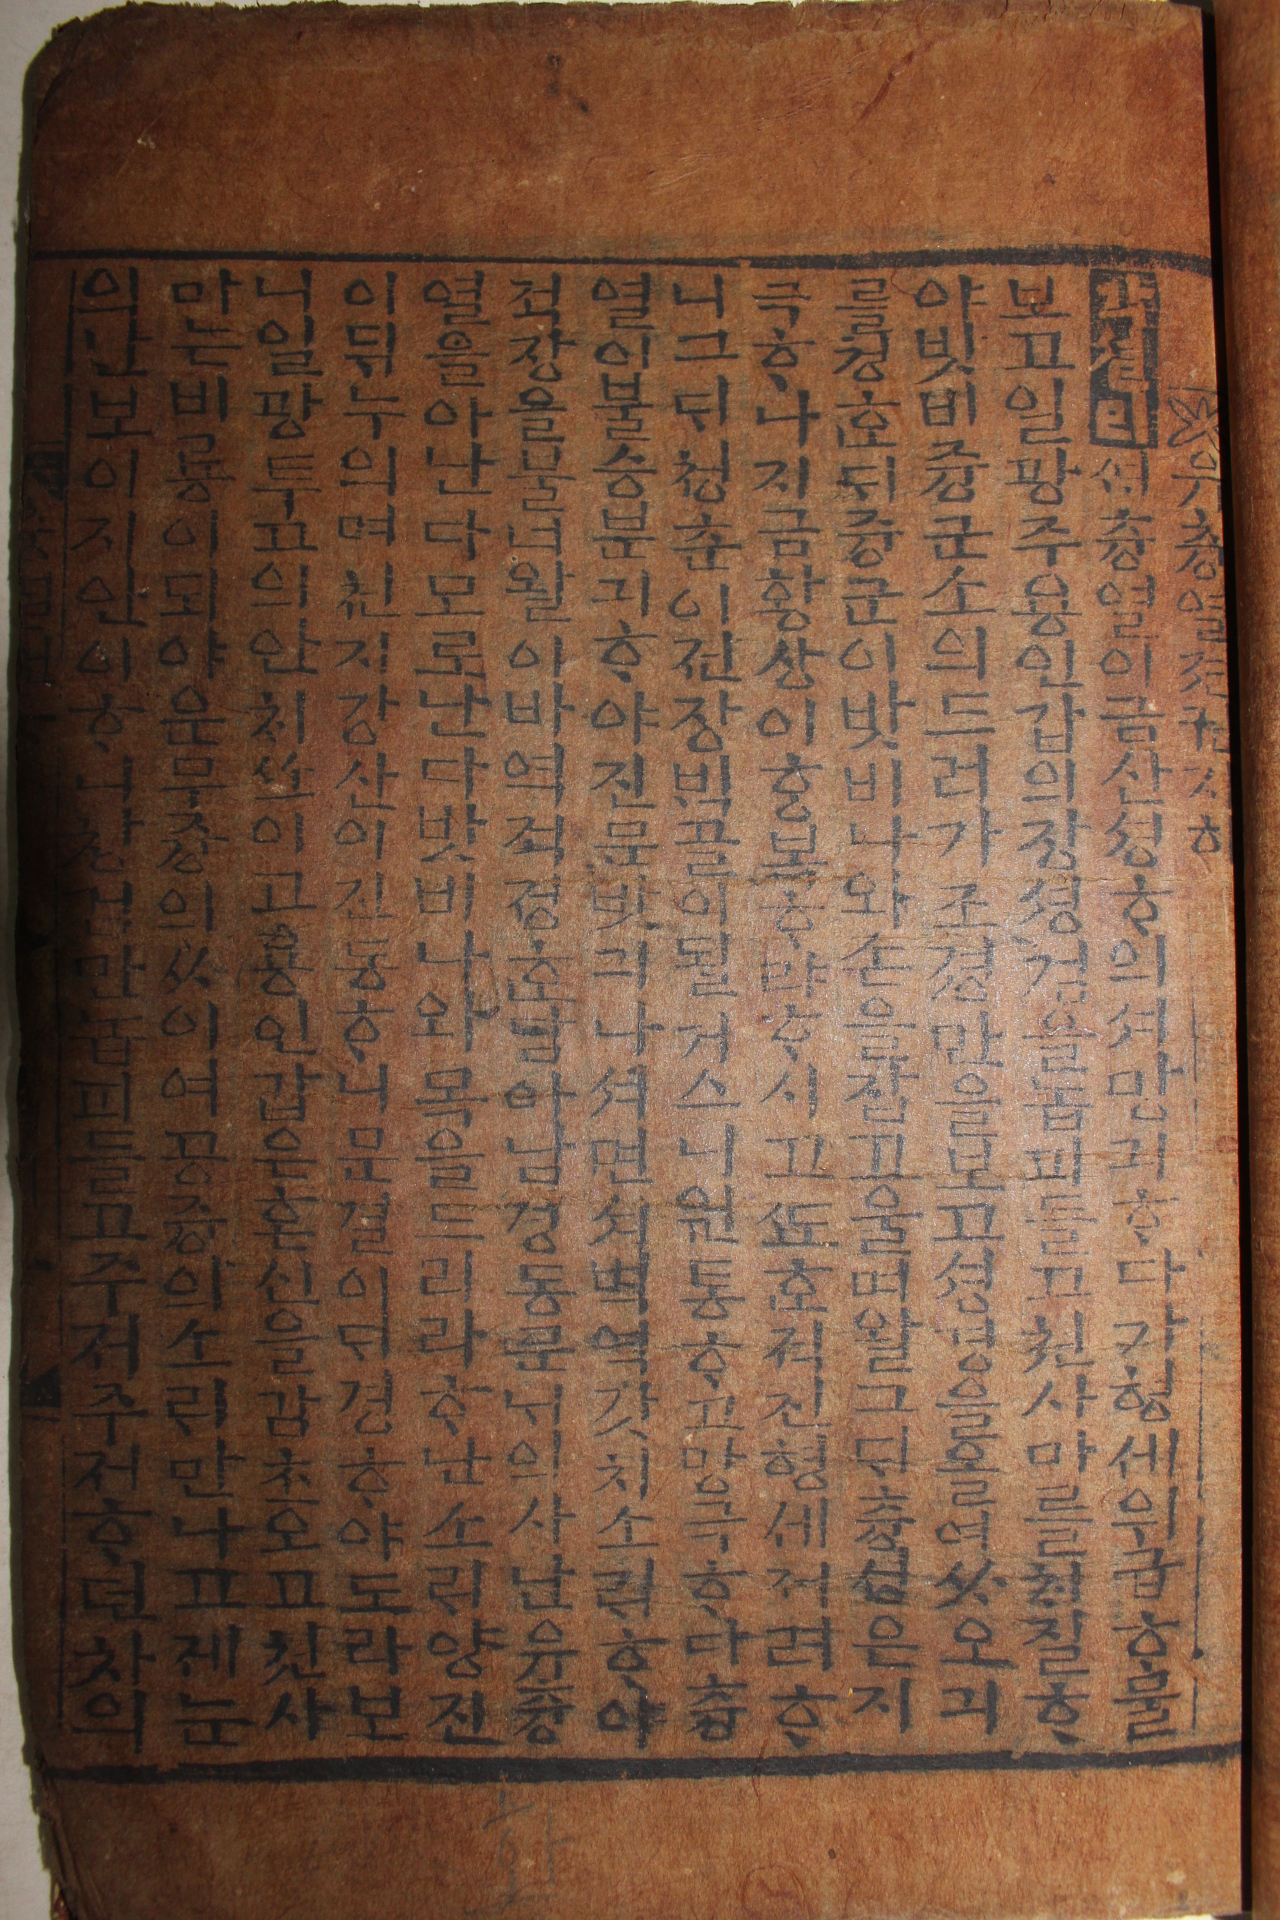 유충열젼권지ᄒᆞ
각셜니ᄯᅥ 유충열이 금산셩ᄒᆞ의셔 망긔ᄒᆞ다가 형셰 위급ᄒᆞ물
보고 일광주 용인갑의 장셩검을 놉피 들고 쳔사마를 칩질ᄒᆞ
야 밧비 즁군소의 드러가 조졍만을 보고 셩명을 올여 ᄊᆞ오긔
를 쳥ᄒᆞᆫᄃᆡ 즁군이 밧비 나와 손을 잡고 울며 왈 그ᄃᆡ 츙셩은 지
극ᄒᆞ나 지금 황상이 ᄒᆞᆼ복ᄒᆞ랴 ᄒᆞ시고 ᄯᅩᄒᆞᆫ 젹진 형셰 져려ᄒᆞ
니 그ᄃᆡ 쳥춘이 젼장 ᄇᆡᆨ골이 될 거스니 원통ᄒᆞ고 망극ᄒᆞ다 츙
열이 불승분긔ᄒᆞ야 진문 밧긔 나셔면셔 벽역갓치 소ᄅᆡᄒᆞ야
젹장을 불너 왈 이바 역젹 졍ᄒᆞᆫ담아 남경 동문 ᄂᆡ의 사난 유츙
열을 아난다 모로난다 밧비 나와 목을 드리라 ᄒᆞ난 소ᄅᆡ 양진
이 뒤누의며 쳔지 강산이 진동ᄒᆞ니 문걸이 ᄃᆡ경ᄒᆞ야 도라보
니 일광투고의 안ᄎᆡ ᄊᆞ이고 용인갑은 혼신을 감초오고 쳔사
만는 비룡이 되야 운무 즁의 ᄊᆞ이여 공즁의 소ᄅᆡ만 나고 졔 눈
의난 보이지 안이ᄒᆞ니 창검만 놉피 들고 주져주져 ᄒᆞ던 차의